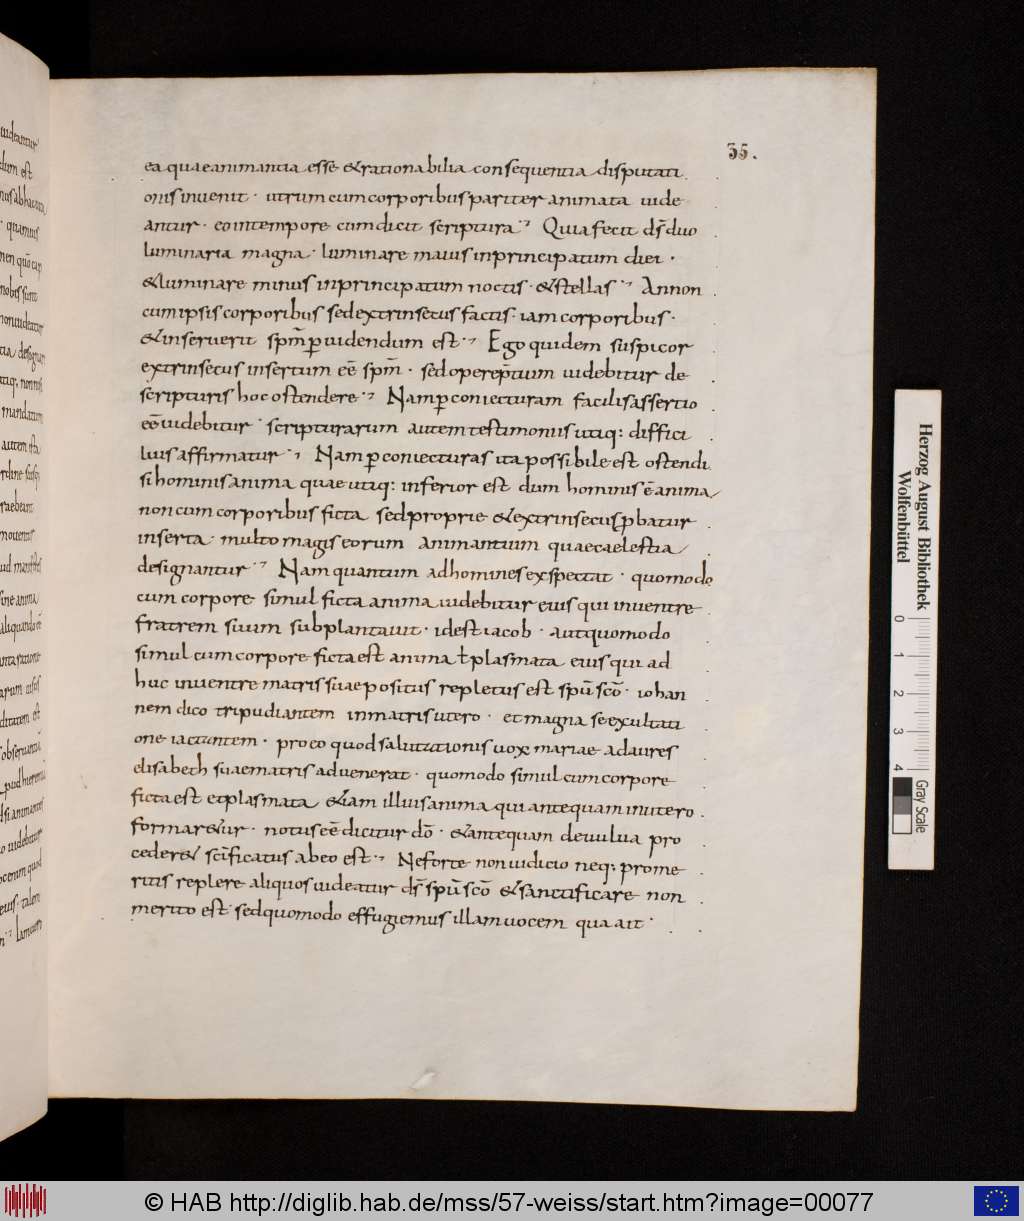 35.
ea quae animantia esse & rationabilia consequentia disputati
onis invenit · utrum cum corporibus pariter animata uide
antur · eo in tempore cum dicit scriptura · Quia fecit d̄s duo
luminaria magna · luminare maius in principatum diei ·
& luminare minus in principatum noctis · & stellas · An non
cum ipsis corporibus sed extrinsecus factis · iam corporibus ·
& inseruerit sp̄m puidendum est · Ego quidem suspicor
extrinsecus insertum eē sp̄m · sed operep̄tium uidebitur de
scripturis hoc ostendere · Nam p coniecturam facilis assertio
eē uidebitur · scripturarum autem testimoniis utiq: diffici
lius affirmatur · Nam p coniecturas ita possibile est ostendi
si hominis anima quae utiq: inferior est dum hominis ē anima
non cum corporibus ficta sed proprie & extrinsecus pbatur
inserta · multo magis eorum animantium quae caelestia
designantur · Nam quantum ad homines exspectat · quomodo
cum corpore simul ficta anima uidebitur eius qui in uentre
fratrem suum subplantauit · id est iacob · aut quomodo
simul cum corpore ficta est anima ł plasmata eius qui ad
huc in uentre matris suae positus repletus est spū scō · iohan
nem dico tripudiantem in matris utero · et magna se exultati
one iactantem · pro eo quod salutationis uox mariae ad aures
elisabeth suae matris aduenerat · quomodo simul cum corpore
ficta est et plasmata &iam illius anima qui antequam in utero
formar&ur · notus eē dicitur dō · & antequam de uulua pro
ceder& sc̄ificatus ab eo est · Ne forte non iudicio neq: prome
ritis replere aliquos uideatur d̄s spū scō & sanctificare non
merito est · sed quomodo effugiemus illam uocem qua ait ·
Herzog August Bibliothek
Wolfenbüttel
0 1 2 3 4
Gray Scale
© HAB http://diglib.hab.de/mss/57-weiss/start.htm?image=00077